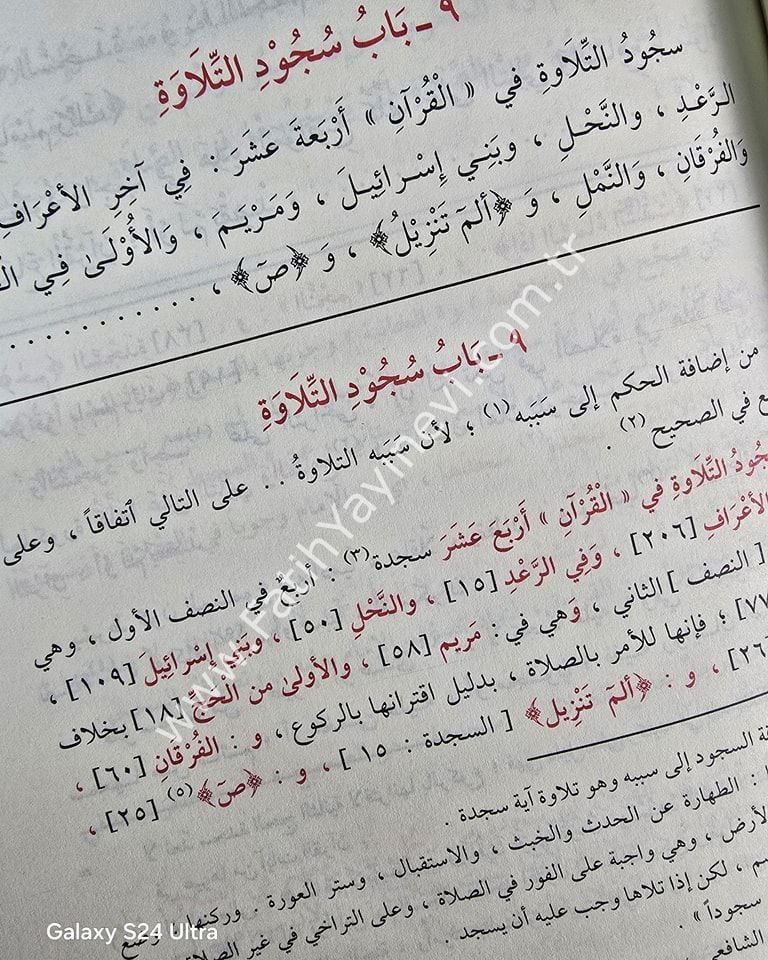 ٩ ـ بَابُ سُجُوْدِ التِّلَاوَةِ
سُجُودُ التِّلَاوَةِ في « الْقُرْآنِ » أَرْبَعَةَ عَشَرَ : فِي آخِرِ الأَعْرَافِ
الرَّعْدِ ، والنَّحْلِ ، وبَنِي إِسْرائِيلَ ، وَمَرْيَمَ ، وَالأُوْلَىٰ فِي
وَالفُرْقَانِ ، وَالنَّمْلِ ، وَ ﴿ألمٓ تَنْزِيْلُ﴾ ، وَ ﴿صٓ﴾ ،
٩ ـ بَابُ سُجُوْدِ التِّلَاوَةِ
من إضافة الحكم إلى سَبَبِه (١) ؛ لأن سَبَبه التلاوةُ . . على التالي اتفاقاً ، وعلى
في الصحيح (٢) .
التِّلَاوَةِ في « الْقُرْآنِ » أَرْبَعَ عَشَرَ سجدة (٣) : أربعٌ في النصف الأول ، وهي
الأَعْرَافِ [٢٠٦] ، وَفِي الرَّعْدِ [١٥] ، والنَّحْلِ [٥٠] ، وبَنِي إِسْرائِيلَ [١٠٩] ،
[ النصف ] الثاني ، وَهي في : مَريم [٥٨] ، والأولىٰ من الحَجِّ [١٨] بخلاف
؛ فإنها للأمر بالصلاة ، بدليل اقترانها بالركوع ، و : الفُرْقَانِ [٦٠] ،
، و : ﴿ألمٓ تَنْزِيل﴾ [ السجدة : ١٥ ] ، و : ﴿صٓ﴾ (٥) [٢٥] ،
السجود إلى سببه وهو تلاوة آية سجدة .
: الطهارة عن الحدث والخبث ، والاستقبال ، وستر العورة . وركنها : وضع
الأرض ، وهي واجبة على الفور في الصلاة ، وعلى التراخي في غير
، لكن إذا تلاها وجب عليه أن يسجد .
سجوداً » .
الشافعي
www.FatihYayinevi.com.tr
Galaxy S24 Ultra